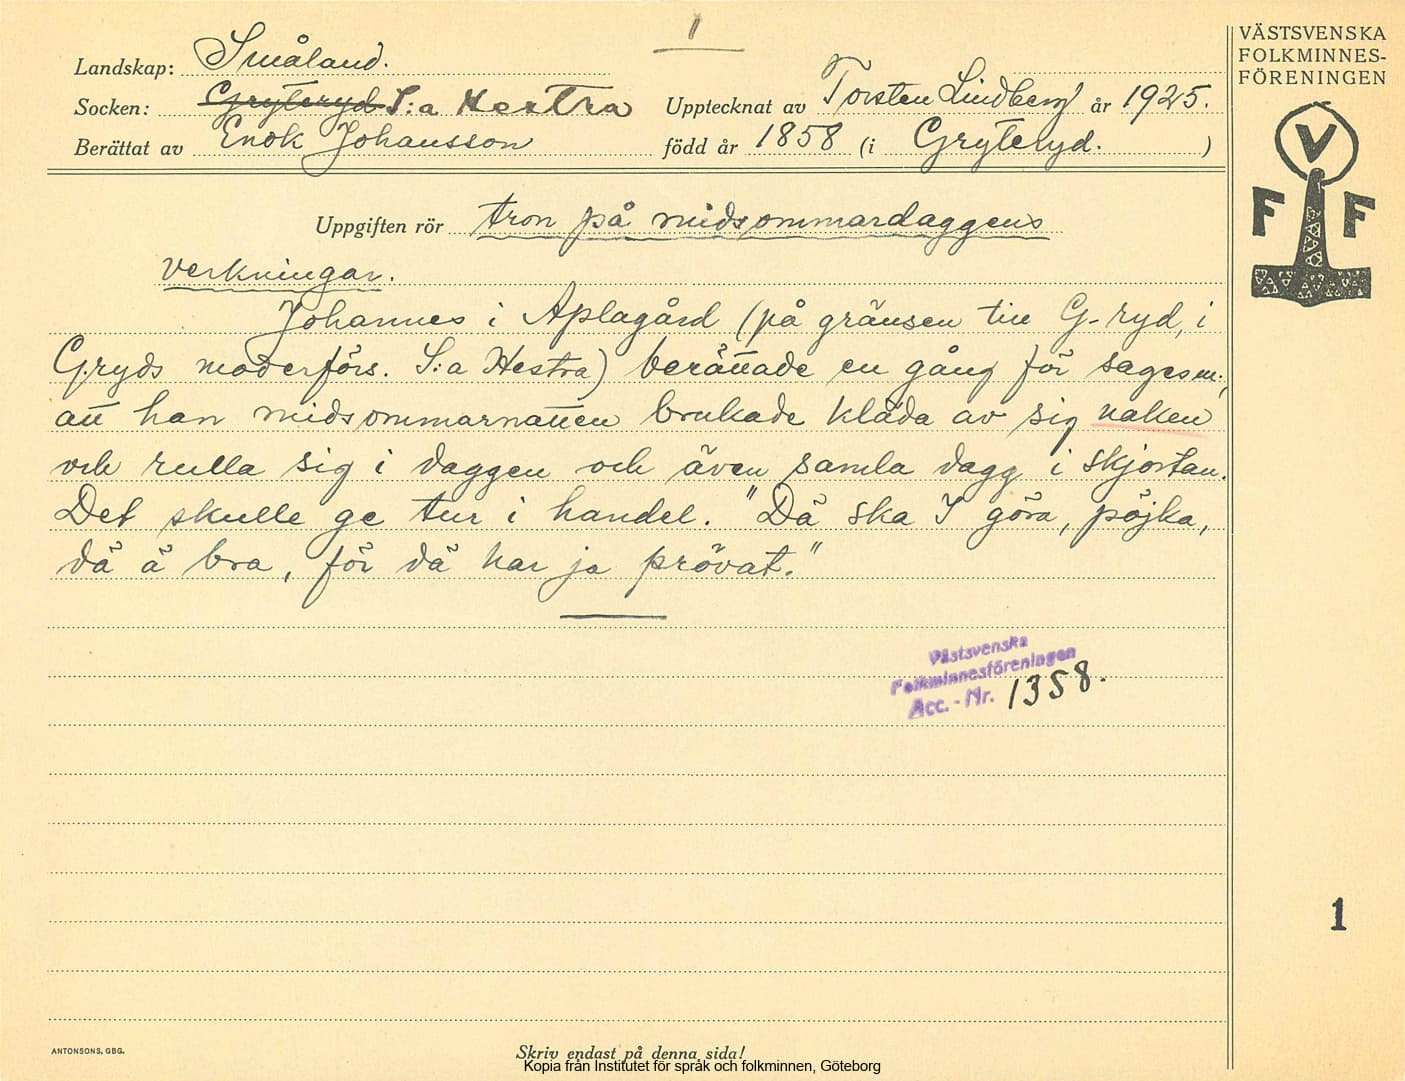 1
VÄSTSVENSKA
FOLKMINNES-
FÖRENINGEN
V
F F
Landskap: Småland.
Socken: Gryteryd S:a Hestra Upptecknat av Torsten Lindberg år 1925.
Berättat av Enok Johansson född år 1858 (i Gryteryd. )
Uppgiften rör tron på midsommardaggens
verkningar.
Johannes i Aplagård (på gränsen till G-ryd, i
G.ryds moderförs. S:a Hestra) berättade en gång för sagesm.,
att han midsommarnatten brukade kläda av sig naken
och rulla sig i daggen och även samla dagg i skjortan.
Det skulle ge tur i handel. "Dä ska I göra, pöjka,
dä ä bra, för dä har ja prövat."
Västsvenska
Folkminnesföreningen
Acc. - Nr. 1358.
1
ANTONSONS, GBG.
Skriv endast på denna sida!
Kopia från Institutet för språk och folkminnen, Göteborg